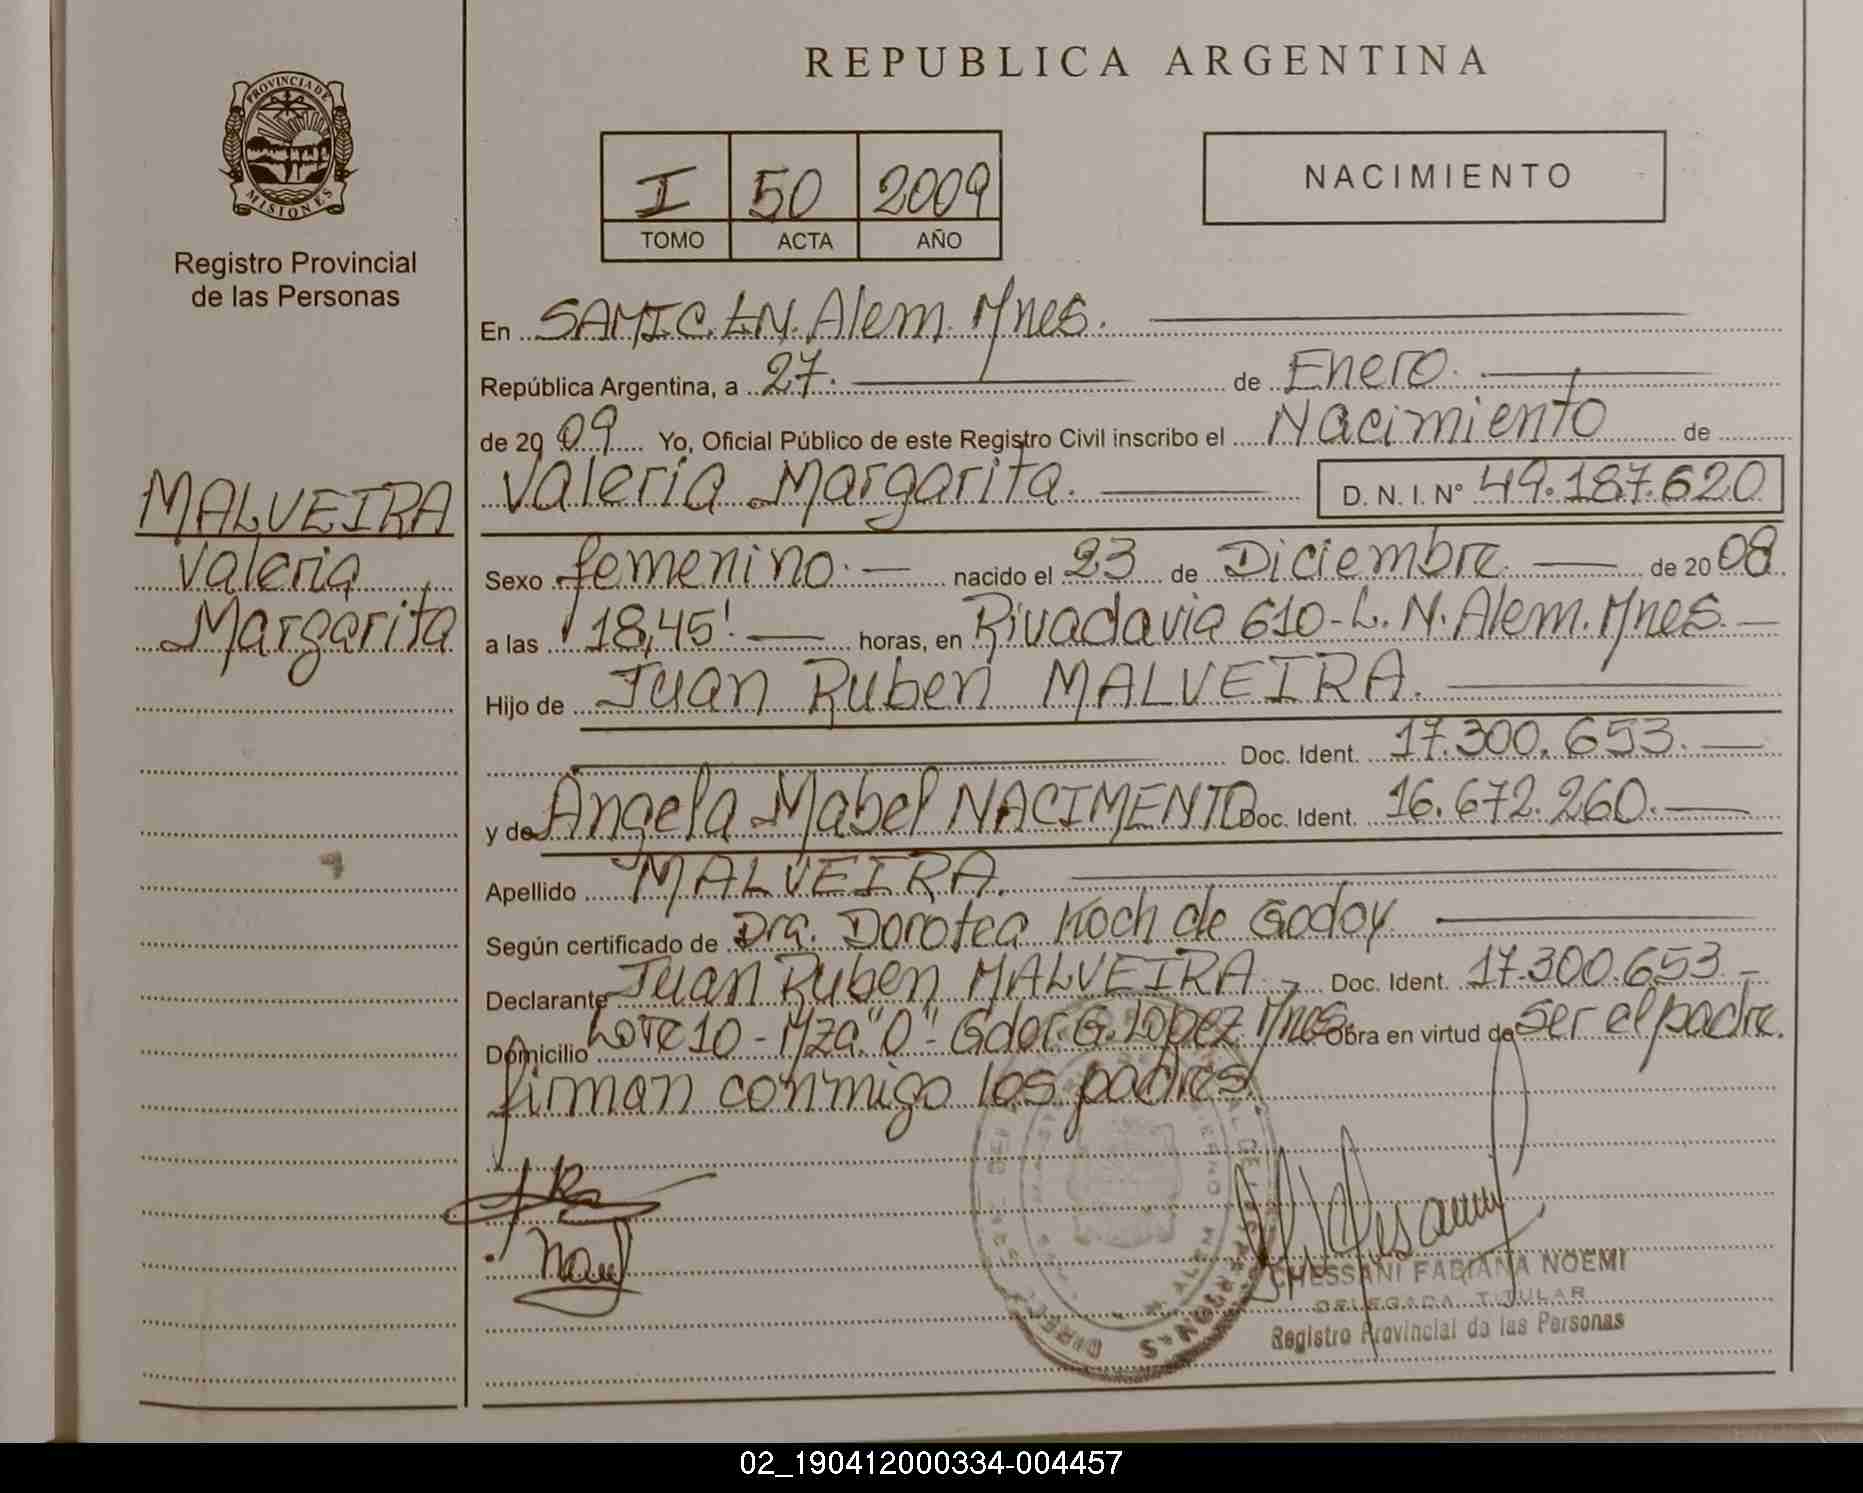 REPUBLICA ARGENTINA
PROVINCIA DE
MISIONES
Registro Provincial
de las Personas
I 50 2009
TOMO ACTA AÑO
NACIMIENTO
En SAMIC. LN. Alem. Mnes.
República Argentina, a 27. de Enero.
de 2009 Yo, Oficial Público de este Registro Civil inscribo el Nacimiento de
Valeria Margarita. D. N. I. Nº 49.187.620
MALVEIRA
Valeria
Margarita
Sexo femenino. nacido el 23 de Diciembre de 2008
a las 18,45'. horas, en Rivadavia 610 - L. N. Alem. Mnes.
Hijo de Juan Ruben MALVEIRA.
Doc. Ident. 17.300.653.
y de Angela Mabel NACIMENTO Doc. Ident. 16.672.260.
Apellido MALVEIRA.
Según certificado de Dra. Dorotea Koch de Godoy
Declarante Juan Ruben MALVEIRA. Doc. Ident. 17.300.653.
Domicilio Lote 10 - Mza "O" - Gdor. G. Lopez. Mnes. Obra en virtud de Ser el padre.
firman conmigo los padres.
CHESSANI FABIANA NOEMI
DELEGADA TITULAR
Registro Provincial de las Personas
02_190412000334-004457